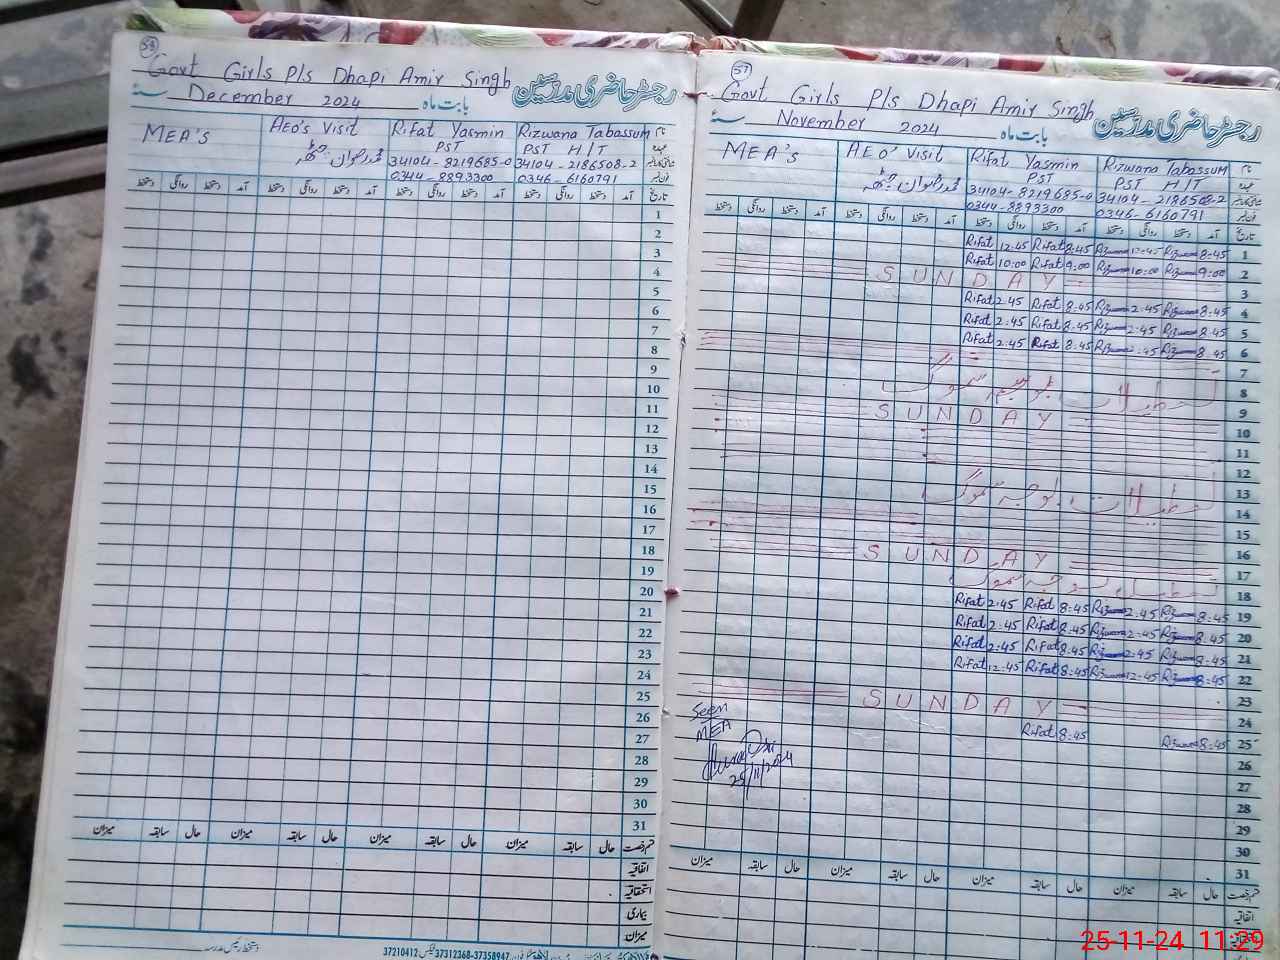 58
Govt Girls P/s Dhapi Amir Singh
رجسٹر حاضری مدرسین
بابت ماہ December 2024 سنہ
MEA'S AEO'S Visit Rifat Yasmin Rizwana Tabassum نام
PST PST H/T عہدہ
34104-8219685-0 34104-2186508-2
0344-8893300 0346-6160791
دستخط روانگی دستخط آمد دستخط روانگی دستخط آمد دستخط روانگی دستخط آمد دستخط روانگی دستخط آمد تاریخ
1
2
3
4
5
6
7
8
9
10
11
12
13
14
15
16
17
18
19
20
21
22
23
24
25
26
27
28
29
30
31
میزان سابقہ حال میزان سابقہ حال میزان سابقہ حال میزان سابقہ حال قسم رخصت
اتفاقیہ
استحقاقیہ
بیماری
میزان
دستخط رئیس مدرسہ
37210412 فیکس 37312368-37358947
57
Govt Girls P/s Dhapi Amir Singh
رجسٹر حاضری مدرسین
بابت ماہ November 2024 سنہ
MEA'S AEO'S Visit Rifat Yasmin Rizwana Tabassum نام
PST PST H/T عہدہ
34104-8219685-0 34104-2186508-2
0344-8893300 0346-6160791
دستخط روانگی دستخط آمد دستخط روانگی دستخط آمد دستخط روانگی دستخط آمد دستخط روانگی دستخط آمد تاریخ
Rifat 12:45 Rifat 8:45 12:45 8:45 1
Rifat 10:00 Rifat 9:00 10:00 9:00 2
SUNDAY 3
Rifat 2:45 Rifat 8:45 2:45 8:45 4
Rifat 2:45 Rifat 8:45 2:45 8:45 5
Rifat 2:45 Rifat 8:45 2:45 8:45 6
7
تعطیلات بوجہ سموگ 8
9
SUNDAY 10
11
12
تعطیلات بوجہ سموگ 13
14
15
16
SUNDAY 17
تعطیل بوجہ سموگ 18
Rifat 2:45 Rifat 8:45 2:45 8:45 19
Rifat 2:45 Rifat 8:45 2:45 8:45 20
Rifat 2:45 Rifat 8:45 2:45 8:45 21
Rifat 12:45 Rifat 8:45 12:45 8:45 22
23
SUNDAY 24
Rifat 8:45 8:45 25
Seen
MEA
25/11/2024
26
27
28
29
30
31
میزان سابقہ حال میزان سابقہ حال میزان سابقہ حال میزان سابقہ حال قسم رخصت
اتفاقیہ
استحقاقیہ
25-11-24 11:29